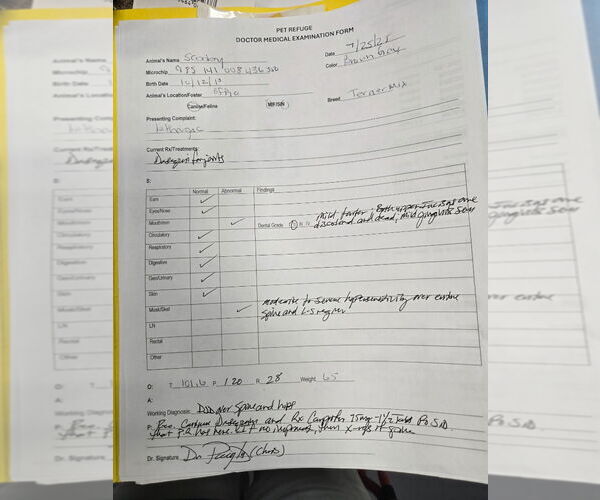 PET REFUGE
DOCTOR MEDICAL EXAMINATION FORM
Animal's Name Scooby Date 7/25/25
Microchip 985 141 008 436 Color Brown Gray
Birth Date 10/12/
Animal's Location/Foster office
Canine/Feline M/F/S/N Breed Terrier Mix
Presenting Complaint:
Lethargic
Current Rx/Treatments:
for joints
S:
Normal Abnormal Findings
Ears ✓
Eyes/Nose ✓
Mouth/mm ✓ Dental Grade I II IV Mild tartar; Both upper are
discolored and dead, mild gingivitis seen
Circulatory ✓
Respiratory ✓
Digestive ✓
Gen/Urinary ✓
Skin ✓
Musk/Skel ✓ moderate to severe hypersensitivity over entire
spine and L-S region
LN
Rectal
Other
O: T 101.6 P 120 R 28 Weight 65
A:
Working Diagnosis DJD over spine and hips
P: Rec. Continue and Rx Carprofen 75mg - 1 1/2 tabs PO SID
that PR has here. If no improvement, then x-rays of spine
Dr. Signature Dr